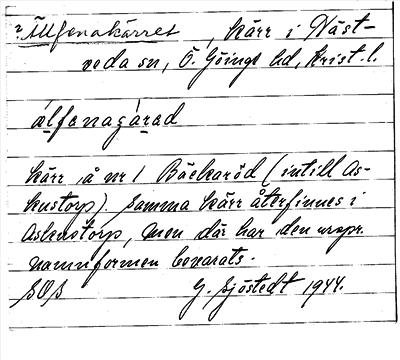 ? Ällfenakärret, kärr i Näst-
veda sn, Ö. Göinge hd, Krist. l.
älfenagárad
kärr å nr 1 Bäckaröd (intill As-
kustorp). Samma kärr återfinnes i
Askustorp, men där har den urspr.
namnformen bevarats.
SOS G. Sjöstedt 1944.